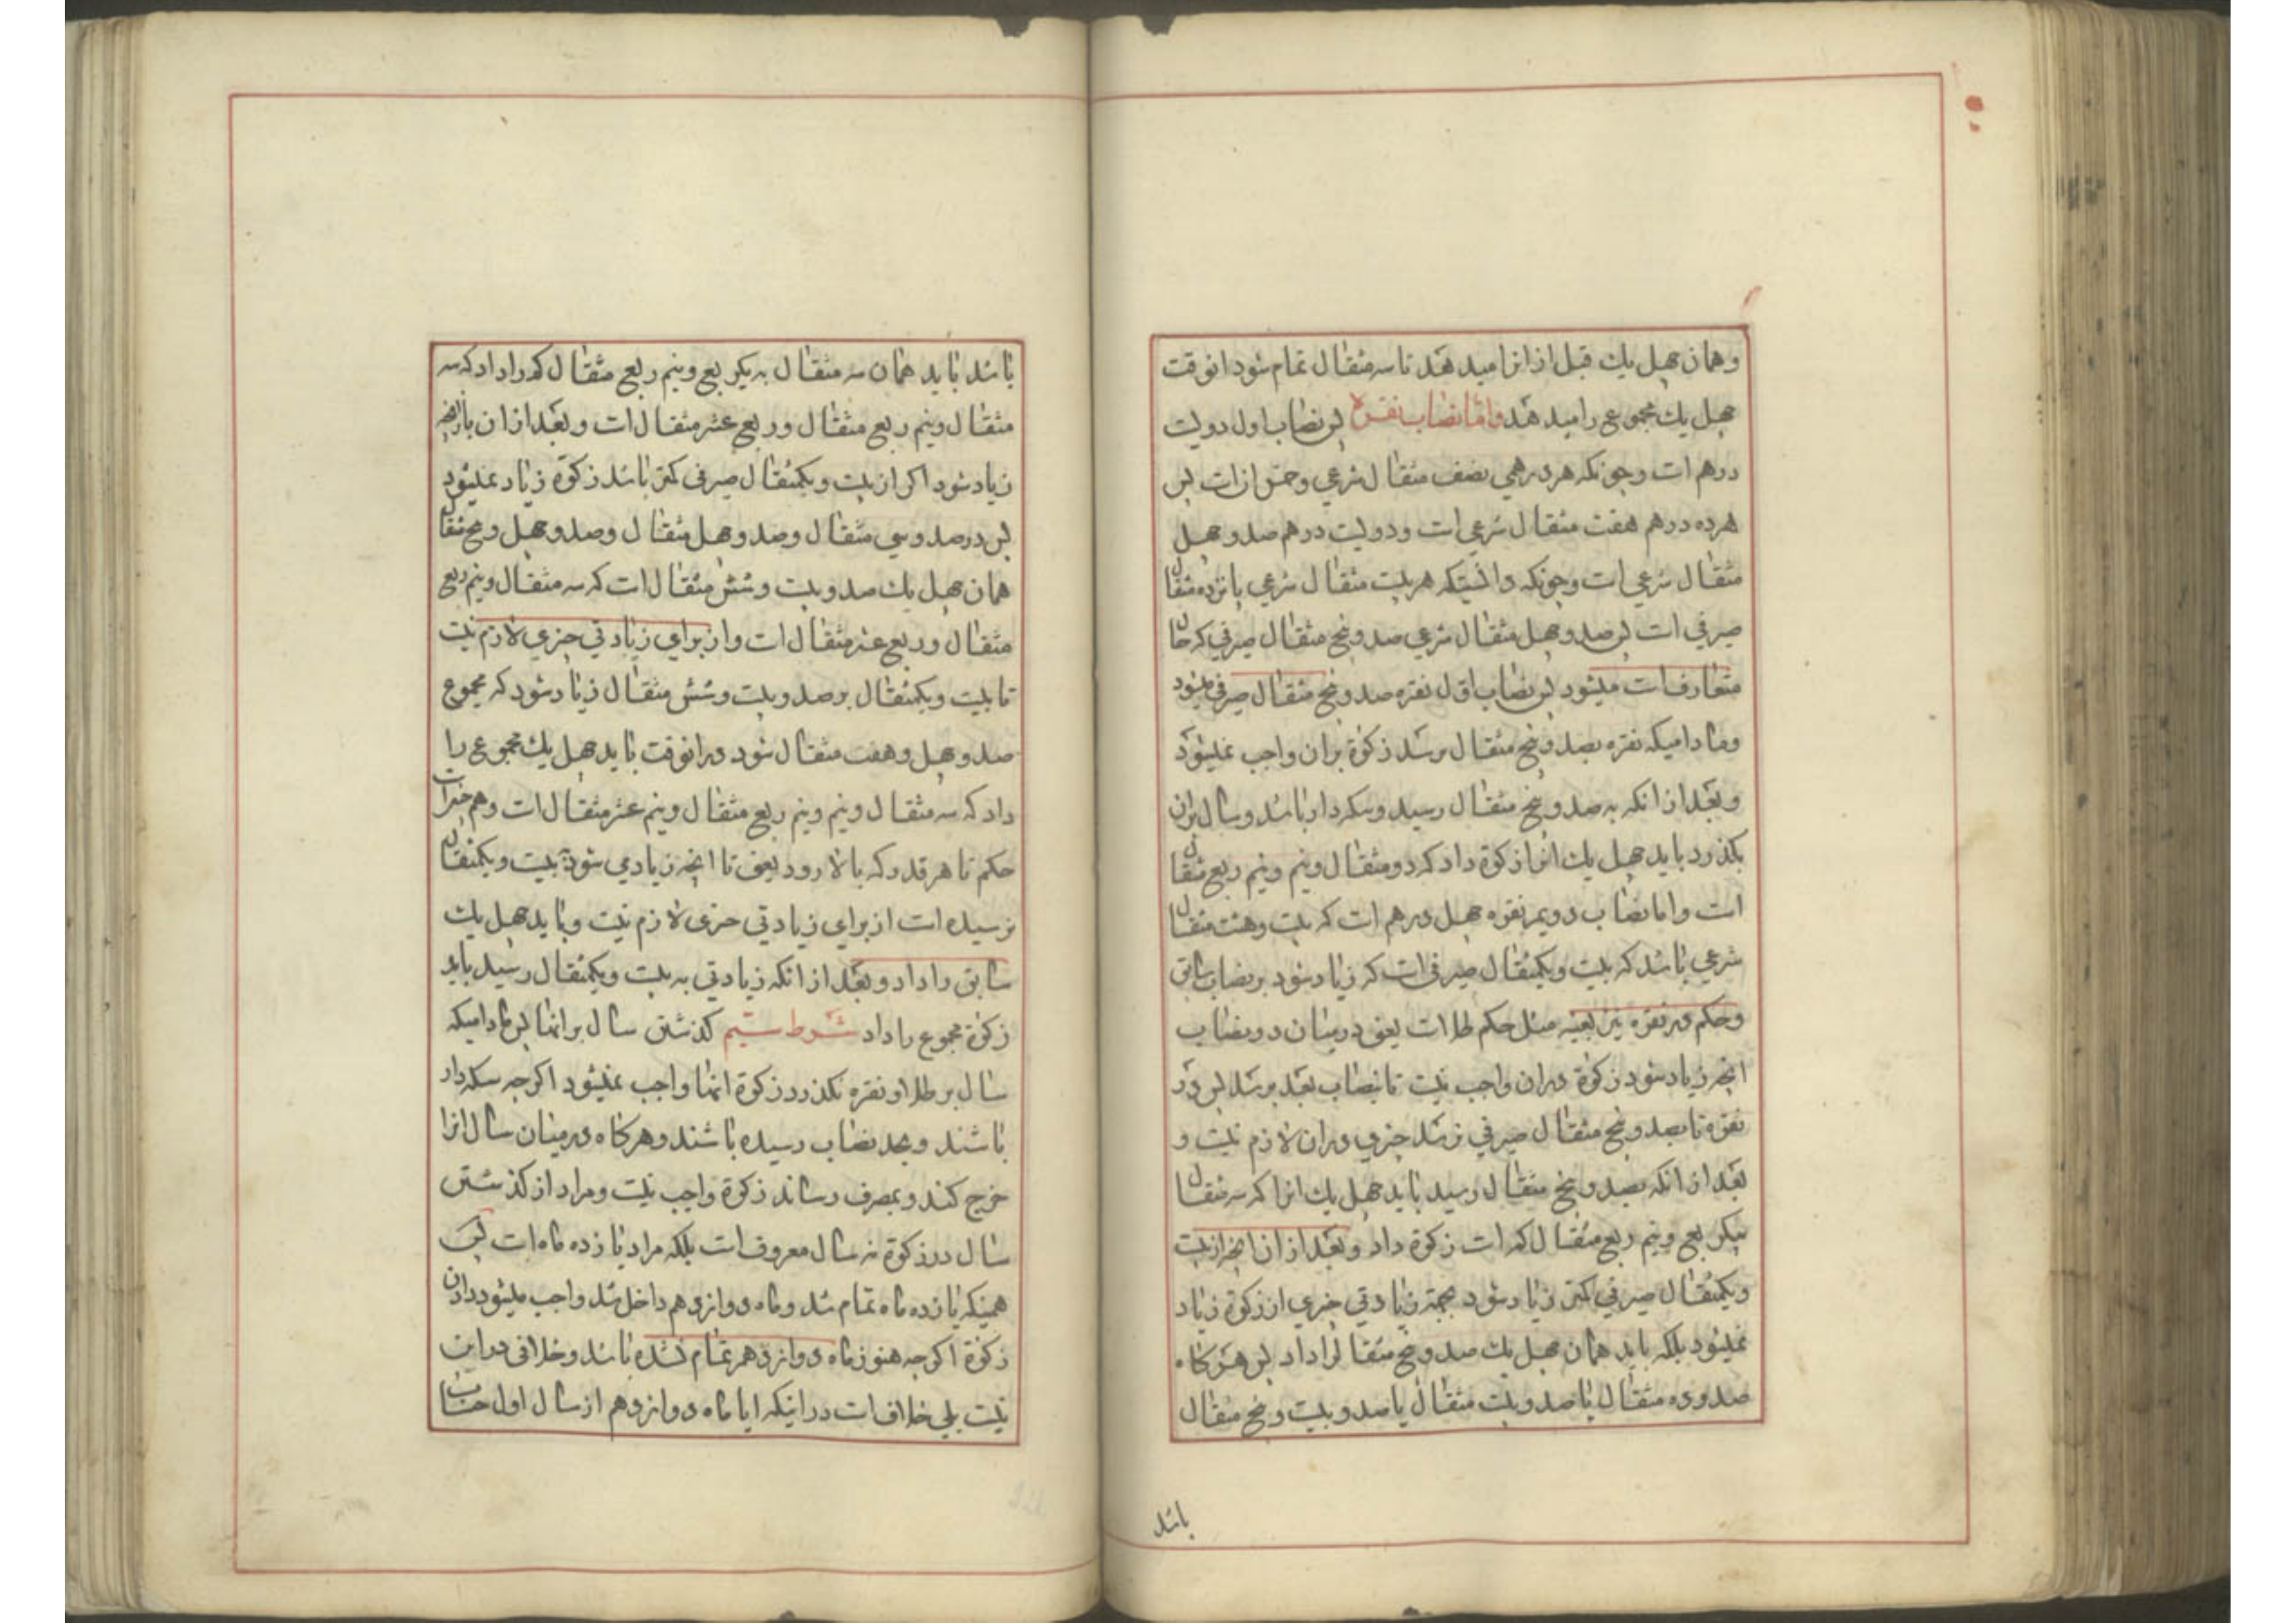 وهمان چهل یك قبل از انرا میدهند تا سه مثقال تمام شود انوقت
چهل یك مجموع را میدهند واما نصاب نقره پس نصاب اول دویست
درهم است وچونکه هر درهمی نصف مثقال شرعی وخمس ان است پس
هر ده درهم هفت مثقال شرعی است ودویست درهم صد وچهل
مثقال شرعی است وچونکه دانستیکه هر بیست مثقال شرعی پانزده مثقال
صیرفی است پس صد وچهل مثقال شرعی صد وپنج مثقال صیرفی که حال
متعارفست میشود پس نصاب اول نقره صد وپنج مثقال صیرفی میشود
ومادامیکه نقره بصد وپنج مثقال نرسد زکوة بران واجب نمیشود
وبعد از انکه به صد وپنج مثقال رسید وسکه دار باشد وسال بران
بگذرد باید چهل یك انرا زکوة داد که دو مثقال ونیم ونیم ربع مثقال
است واما نصاب دویم نقره چهل درهم است که بیست وهشت مثقال
شرعی باشد که بیست ویکمثقال صیرفی است که زیاد شود بر نصاب سابق
وحکم در نقره نیز بعینه مثل حکم طلا است یعنی در میان دو نصاب
انچه زیاد شود زکوة دران واجب نیست تا بنصاب بعد برسد پس در
نقره تا بصد وپنج مثقال صیرفی نرسد چیزی دران لازم نیست و
بعد از انکه بصد وپنج مثقال رسید باید چهل یك انرا که سه مثقال
بیکربع ونیم ربع مثقال کم است زکوة داد وبعد از ان انچه از بیست
ویکمثقال صیرفی کمتر زیاد شود بجهة زیادتی چیزی از زکوة زیاد
نمیشود بلکه باید همان چهل یك صد وپنج مثقال را داد پس هرگاه
صد وده مثقال یا صد وبیست مثقال یا صد وبیست وپنج مثقال
باشد
باشد باید همان سه مثقال به یکربع ونیم ربع مثقال کم را داد که سه
مثقال ونیم ربع مثقال وربع عشر مثقال است وبعد از ان باز انچه
زیاد شود اگر از بیست ویکمثقال صیرفی کمتر باشد زکوة زیاد نمیشود
پس در صد وسی مثقال وصد وچهل مثقال وصد وچهل وپنج مثقال
همان چهل یك صد وبیست وشش مثقال است که سه مثقال ونیم ربع
مثقال وربع عشر مثقال است واز برای زیادتی چیزی لازم نیست
تا بیست ویکمثقال بر صد وبیست وشش مثقال زیاد شود که مجموع
صد وچهل وهفت مثقال شود در انوقت باید چهل یك مجموع را
داد که سه مثقال ونیم ونیم ربع مثقال ونیم عشر مثقال است وهم چنین است
حکم تا هر قدر که بالا رود یعنی تا انچه زیادی شود به بیست ویکمثقال
نرسیده است از برای زیادتی چیزی لازم نیست وباید چهل یك
سابق را داد وبعد از انکه زیادتی به بیست ویکمثقال رسید باید
زکوة مجموع را داد شرط سیم گذشتن سال بر انها پس مادامیکه
سال بر طلا ونقره نگذرد زکوة انها واجب نمیشود اگرچه سکه دار
باشند وبحد نصاب رسیده باشند وهرگاه در میان سال انرا
خرج کند وبمصرف رساند زکوة واجب نیست ومراد از گذشتن
سال در زکوة نه سال معروف است بلکه مراد یازده ماه است پس
همینکه یازده ماه تمام شد وماه دوازدهم داخل شد واجب میشود دادن
زکوة اگرچه هنوز ماه دوازدهم تمام نشده باشد وخلافی در این
نیست بلی خلاف است در اینکه ایا ماه دوازدهم از سال اول حساب